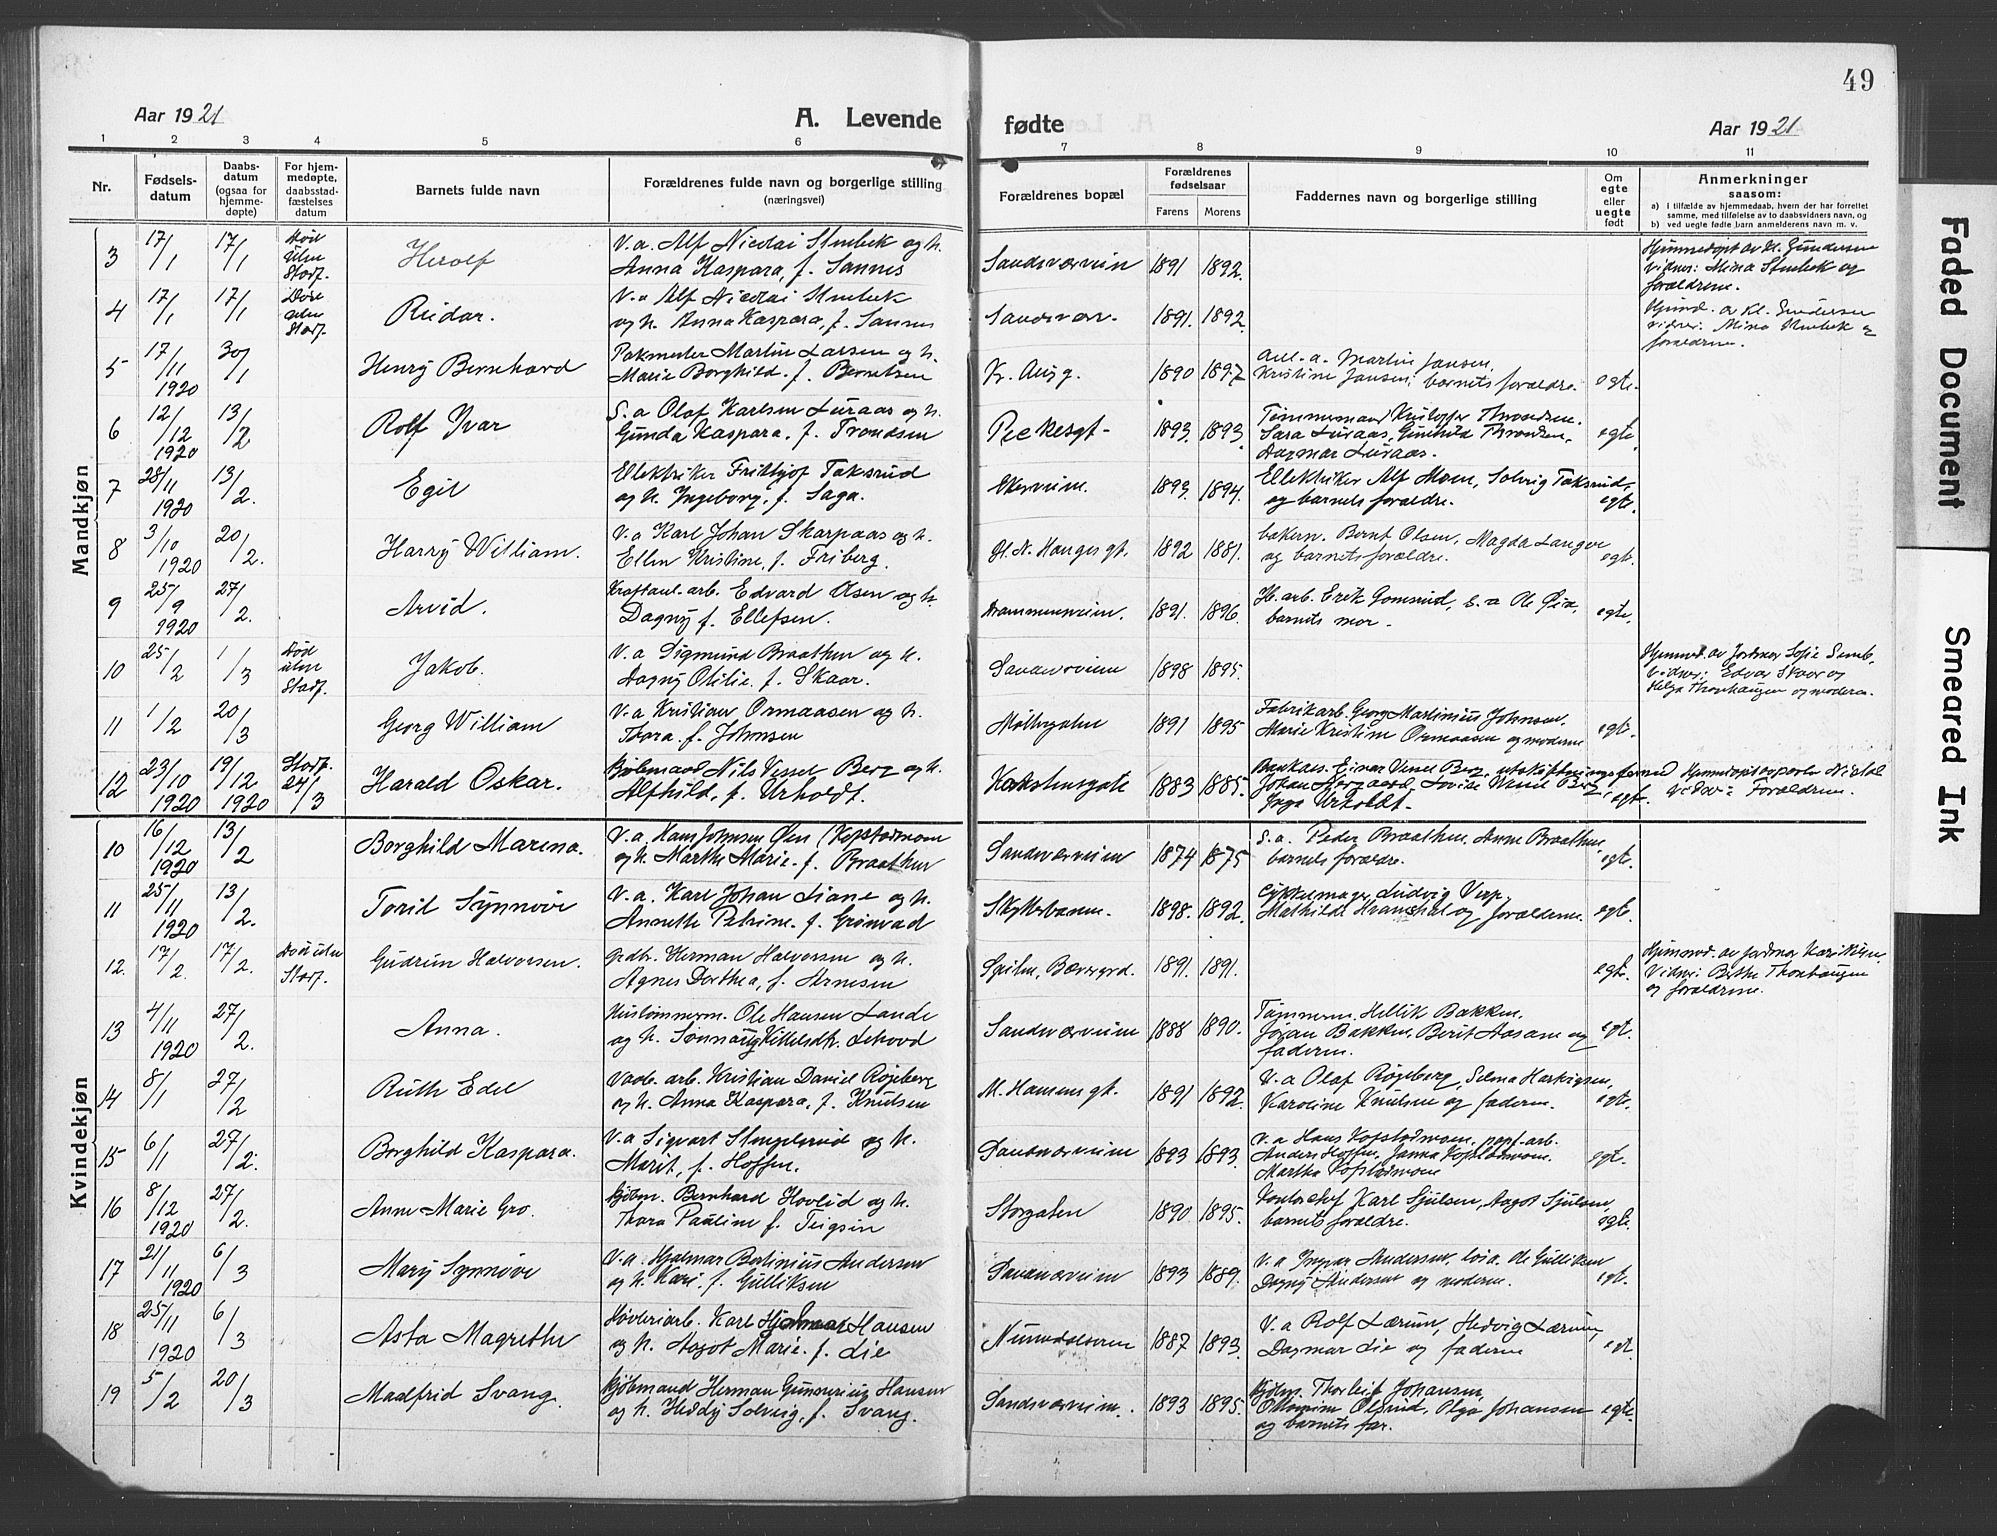 49
Aar 1921
A. Levende
fødte
Aar 1921
1 2 3 4 5 6 7 8 9 10 11
Nr.
Fødsels-
datum
Daabs-
datum
(ogsaa for
hjemme-
døpte)
For hjem-
medøpte,
daabsstad-
fæstelses
datum
Barnets fulde navn
Forældrenes fulde navn og borgerlige stilling
(næringsvei)
Forældrenes bopæl
Forældrenes
fødselsaar
Farens Morens
Faddernes navn og borgerlige stilling
Om
egte
eller
uegte
født
Anmerkninger
saasom:
a) I tilfælde av hjemmedaab, hvem der har forrettet
samme, med tilføielse av to daabsvidners navn, og
b) ved uegte fødte barn anmelderens navn m. v.
Mandkjøn
3 17/1 17/1 Død uten Stadf. Herolf
V.a. Alf Nicolai Stubek og h.
Anna Kaspara, f. Sannes
1891 1892.
Hjemmedøpt av Kl. Gundersen
Vidner: Mina Stubek og
forældrene.
4 17/1 17/1 Døde uten Stadf. Reidar.
V.a Alf Nicolai Stubek
og h. Anna Kaspara, f. Sannes
Sandsvær. 1891. 1892.
Hjemd. av Kl. Gundersen
vidner: Mina Stubek og
forældrene.
5 17/11 1920 30/1 Henry Bernhard
Pakmester Martin Larsen og h.
Marie Borghild. f. Berntsen
Kr. Aug g. 1890 1897
Anl. a. Martin Jansen,
Kristine Jansen, barnets forældre. egte.
6 12/12 1920 13/2 Rolf Yvar
S.a Olaf Karlsen Luraas og h.
Gunda Kaspara, f. Trondsen
1893. 1893.
Tømmermand Kristoffer Throndsen.
Sara Luraas, Gunhild Throndsen,
Dagmar Luraas. egte.
7 28/11 1920 13/2. Egil
Ellektriker Frithjof Taksrud
og h. Ingeborg, f. Saga.
1893. 1894.
Ellektriker Alf Moen, Solveig Taksrud,
og barnets forældre. egte.
8 3/10 1920 20/2. Harry William.
V.a Karl Johan Skarpaas og h.
Ellen Kristine, f. Friberg.
H. N. Hauges gt. 1892 1881.
bakerm. Bernt Olsen, Magda Langor
og barnets forældre. egte.
9 25/9 1920 27/2. Arvid.
Kraftanl. arb. Edvard Olsen og h.
Dagny f. Ellefsen.
Drammensveien. 1891. 1896.
Hb. arb. Erik Gomsrud, s. a Ole Øia,
barnets mor. egte.
10 25/2 1/3 Død uten Stadf. Jakob.
V.a Sigmund Braathen og h.
Dagny Otilie. f. Skaar.
Sandsværveien 1898 1895.
Hjemmed. av Jordmor Sofie
Vidner:
Helga Thonhaugen og moderen.
11 1/2 20/3 Georg William
V.a Kristian Ormaasen og h.
Thora. f. Johnsen
1891 1895
Fabrikarb. Georg Martinius Johnsen,
Marie Kristine Ormaasen og moderne egte.
12 23/10 1920 19/12 1920 Stadf. 27/3 Harald Oskar.
Kjøbmand Nils Vessel Berg og h.
Alfhild, f. Urholdt.
1883 1885.
Inga Urholdt. egte.
Vidner: Forældrene.
Kvindekjøn
10 16/12 1920 13/2 Borghild Marena.
V.a. Hans Johnsen Øen (Kopstadmoen
og h. Marthe Marie. f. Braathen
Sandsværveien 1874 1875
S.a. Peder Braathen, Anne Braathen,
barnets forældre. egte.
11 25/11 1920 13/2. Torid Synnøve
V.a. Karl Johan Liane og h.
Annette Petrine. f. Grønvad
Skytterbanen. 1898. 1892.
Cykkelmager Ludvig Verp,
Mathilde og forælderne. egte.
12. 17/2. 17/2. Død uten Stadf. Gudrun Halvorsen.
Grdbr. Herman Halvorsen og h.
Agnes Dorthea, f. Arnesen
1891. 1891. egte.
Hjemmed. av jordmor Kari Nilsen.
Vidner: Berthe Thonhaugen
og forældrene.
13 4/11 1920 27/2. Anna.
Hustømmerm. Ole Hansen Lande
og h. Sønnaug Kittelsdtr. Lehovd
Sandsværveien 1888 1890.
Tømmerm. Hellik Bakken.
Jøran Bakken, Berit Aasane og
faderen. egt.
14 8/1 27/2 Ruth Edel
Vaab. arb. Kristian Daniel Røyeberg
og h. Anna Kaspara, f. Knutsen
M. Hansens gt. 1891 1892.
V.a Olaf Røyeberg, Selma Harkigsen,
Karoline Knutsen og faderen. egte.
15 6/1 27/2. Borghild Kaspara.
V.a Sigvart Stengelsrud og h.
Marit, f. Hoffen.
Sandsværveien 1893 1893.
V.a Hans Kopstadmoen, papf. arb.
Anders Hoffen, Janna Kopstadmoen.
Martha Kopstadmoen egt.
16 8/12 1920 27/2. Anne Marie Gro.
Kjøbm. Bernhard Hovlid og h.
Thora Pauline f. Teigsen
Storgaten 1890. 1895.
Kontorchef Karl Sjulsen, Aagot Sjulsen,
barnets forældre. egte.
17 21/11 1920 6/3 Mary Synnøve
V.a. Hjalmar Bertinius Andersen
og h. Kari. f. Gulliksen
Sandsværveien 1893 1889.
V.a Ingvar Andersen, Ole Gulliksen
Dagny Andersen og moderne. egt.
18 25/11 1920 6/3 Asta Magrethe
Høvleriarb. Karl Hjalmar Hansen
og h. Aagot Marie. f. Lie
Numedalsveien 1887 1893.
V.a Rolf Lærum, Hedvig Lærum,
Dagmar Lie og faderne egt.
19 5/2 20/3 Maalfrid Svang.
Kjøbmand Herman Gunnerius Hansen
og h. Heddy Solveig, f. Svang.
Sandsværveien. 1893 1895.
Kjøbm. Thorleif Johansen,
Olsrud, Olga Johansen
og barnets far. egte.
Faded Document
Smeared Ink